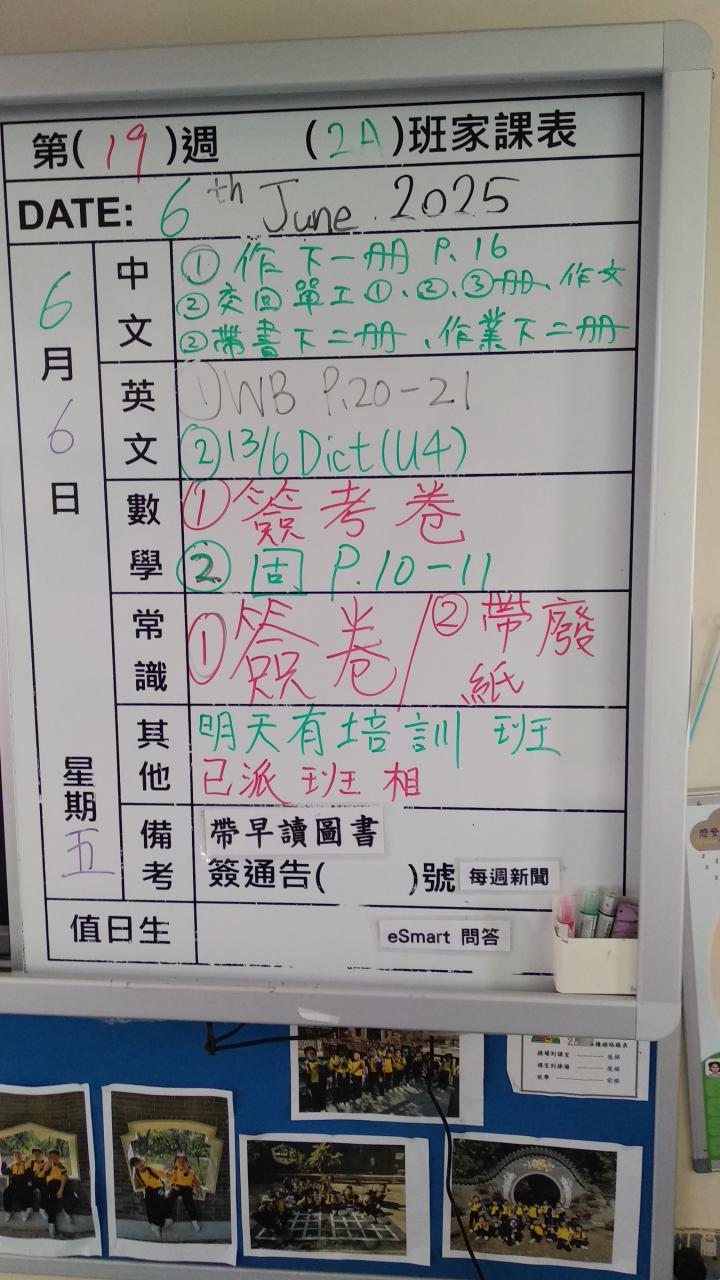 第(19)週 (2A)班家課表
DATE: 6th June 2025
6月6日 星期五
中文
① 作下一册 P.16
② 交回單工①、②、③册、作文
② 帶書下二册、作業下二册
英文
① WB P.20-21
② 13/6 Dict (U4)
數學
① 簽考卷
② 固 P.10-11
常識
① 簽卷/② 帶廢
紙
其他
明天有培訓班
已派班相
備考
帶早讀圖書
簽通告( )號 每週新聞
值日生
eSmart 問答